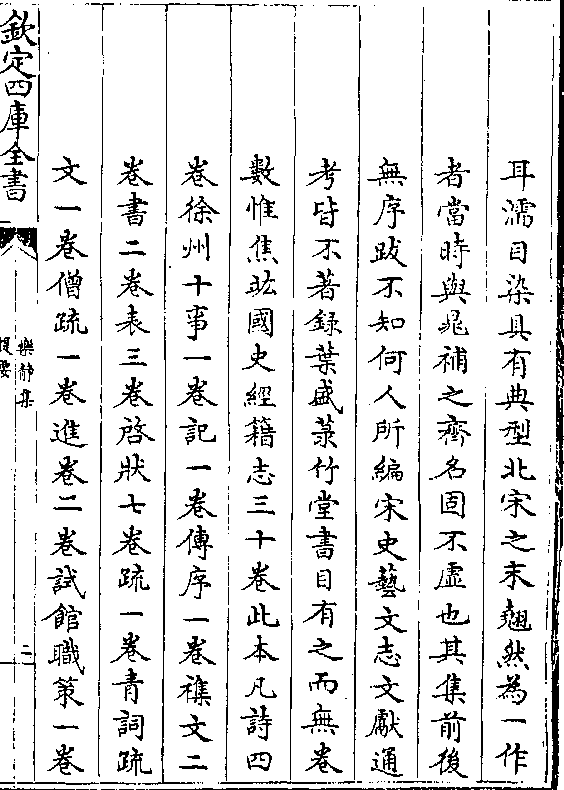 耳濡目染具有典型北宋之末翹然為一作
者當時與晁補之齊名固不虛也其集前後
無序跋不知何人所編宋史藝文志文獻通
考皆不著録葉盛菉竹堂書目有之而無卷
數惟焦竑國史經籍志三十卷此本凡詩四
卷徐州十事一卷記一卷傳序一卷襍文二
卷書二卷表三卷啓狀七卷疏一卷青詞疏
文一卷僧疏一卷進卷二卷試館職策一卷
欽定四庫全書
樂靜集
提要
二